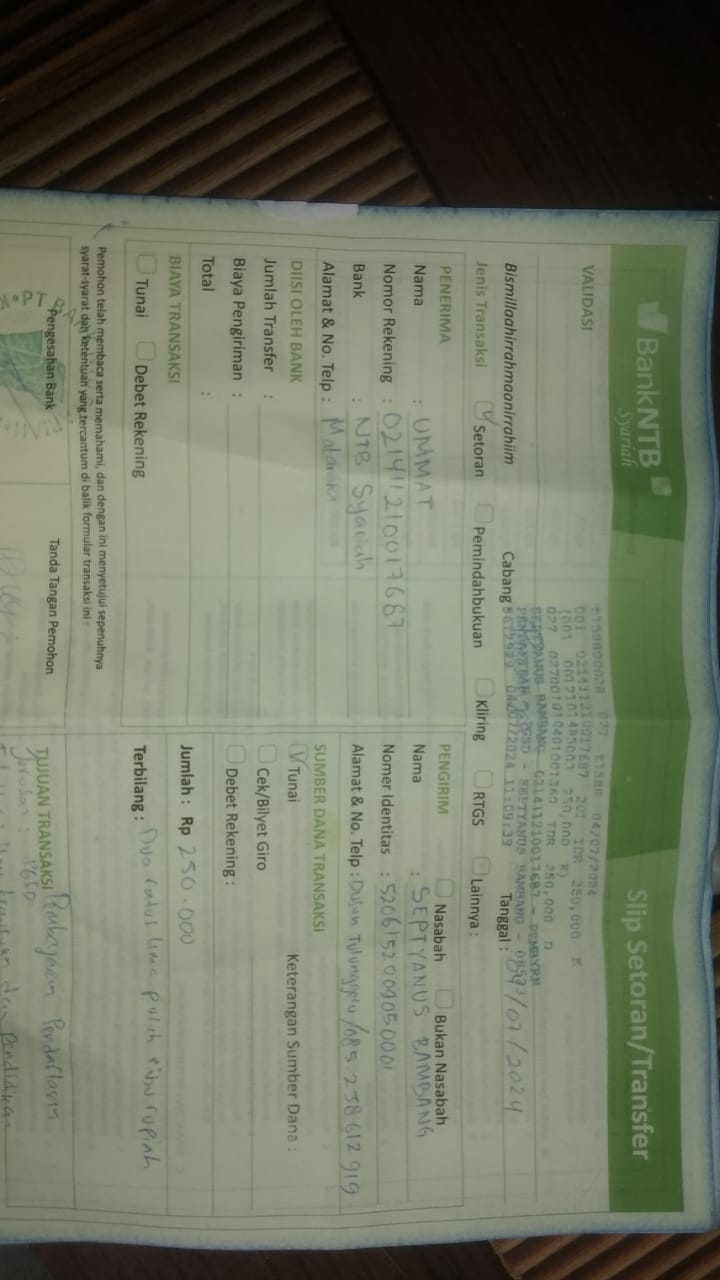 BankNTB
Syariah
Slip Setoran/Transfer
VALIDASI
04/07/2024
001 021411210017687 201 IDR 250,000 K
027 027001010401001360 IDR 250,000 D
SEPTYANUS BAMBANG 021411210017687
04/07/2024 11:09:39
Bismillaahirrahmaanirrahiim
Cabang
Tanggal : 04/07/2024
Jenis Transaksi
Setoran
Pemindahbukuan
Kliring
RTGS
Lainnya :
PENERIMA
Nama : UMMAT
Nomor Rekening : 021411210017687
Bank : NTB Syariah
Alamat & No. Telp : Mataram
PENGIRIM
Nasabah
Bukan Nasabah
Nama : SEPTYANUS BAMBANG
Nomer Identitas : 5206152009050001
Alamat & No. Telp : Dusun Tulunggeru/085.238612919
DIISI OLEH BANK
Jumlah Transfer :
Biaya Pengiriman :
Total :
SUMBER DANA TRANSAKSI
Tunai
Keterangan Sumber Dana :
Cek/Bilyet Giro
Debet Rekening :
BIAYA TRANSAKSI
Tunai
Debet Rekening
Jumlah : Rp 250.000
Terbilang : Dua ratus lima puluh ribu rupiah
Pemohon telah membaca serta memahami, dan dengan ini menyetujui sepenuhnya
syarat-syarat dan ketentuan yang tercantum di balik formulir transaksi ini
Pengesahan Bank
Tanda Tangan Pemohon
TUJUAN TRANSAKSI
Pembayaran Pendaftaran
Jurusan : PGSD
dan Pendidikan